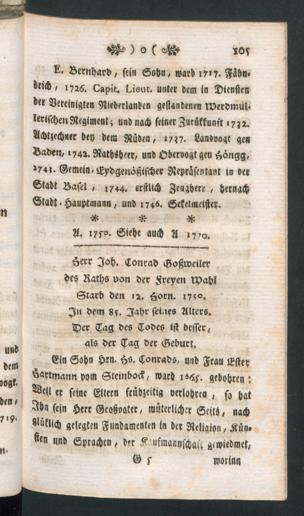 ) o (
105
E. Bernhard, sein Sohn, ward 1717. Fähn-
drich, 1726. Capit. Lieut. unter dem in Diensten
der Vereinigten Niederlanden gestandenen Werdmül-
lerischen Regiment; und nach seiner Zurükkunft 1732.
Achtzechner bey dem Rüden, 1737. Landvogt gen
Baden, 1742. Rathsherr, und Obervogt gen Höngg,
1743. Gemein-Eydgenößischer Repräsentant in der
Stadt Basel, 1744. erstlich Zeugherr, hernach
Stadt-Hauptmann, und 1746. Sekelmeister.
* * *
A. 1750. Siehe auch A 1770.
Herr Joh. Conrad Goßweiler
des Raths von der Freyen Wahl
Starb den 12. Horn. 1750.
In dem 85. Jahr seines Alters.
Der Tag des Todes ist besser,
als der Tag der Geburt.
Ein Sohn Hrn. Hs. Conrads, und Frau Ester
Hartmann vom Steinbock, ward 1665. gebohren:
Weil er seine Eltern frühzeitig verlohren, so hat
Ihn sein Herr Großvater, müterlicher Seits, nach
glüklich gelegten Fundamenten in der Religion, Kün-
sten und Sprachen, der Kaufmannschaft gewiedmet,
G 5
worinn
und
dem
den,
1719.